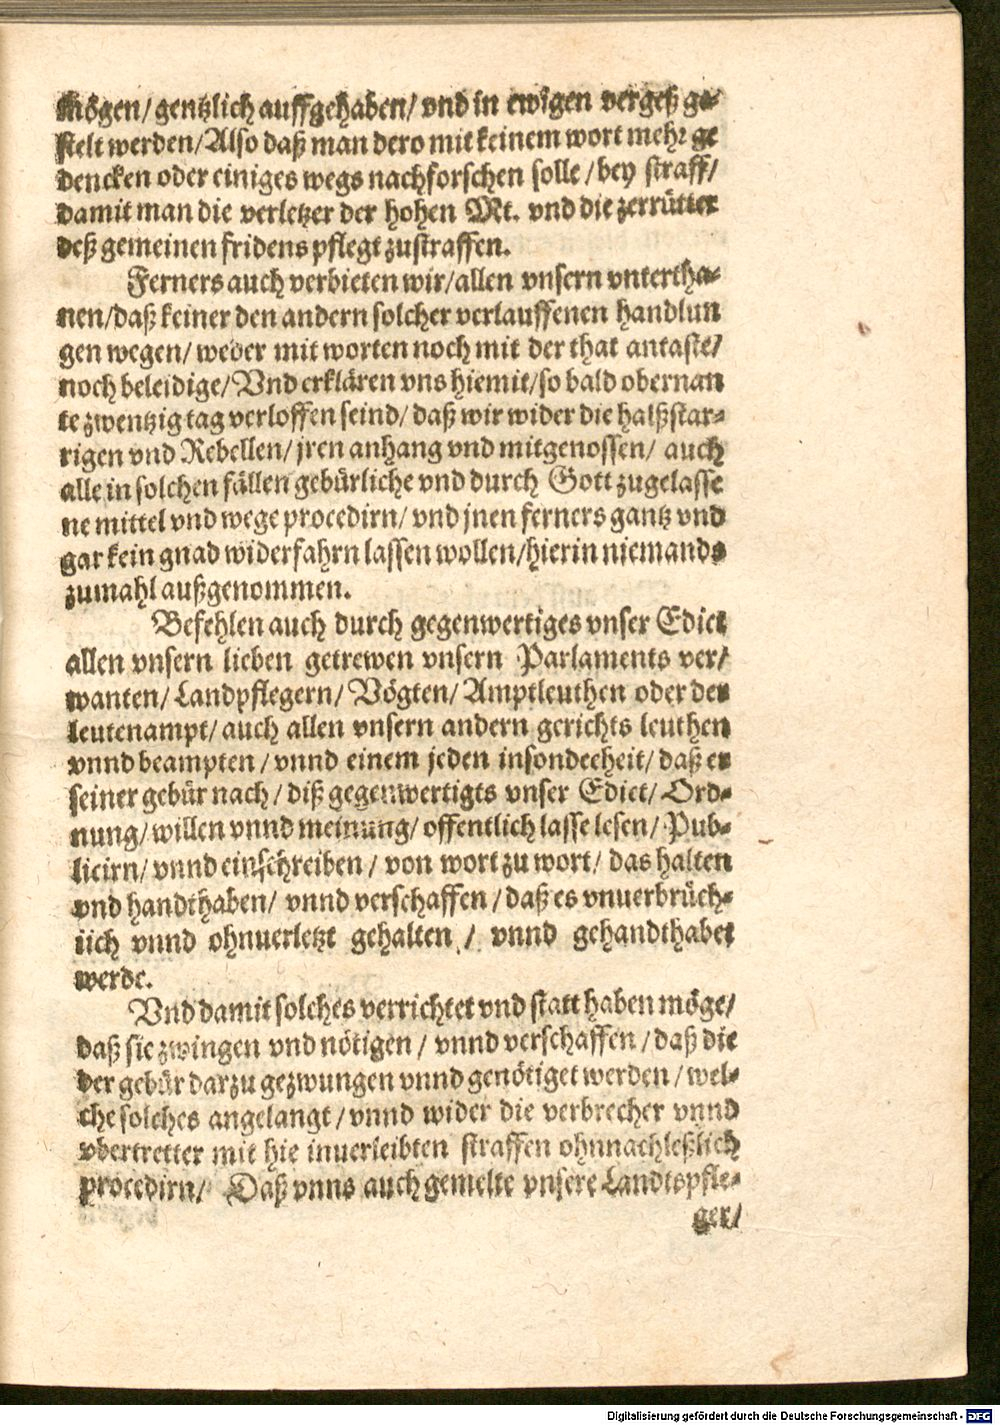 mögen/ gentzlich auffgehaben/ vnd in ewigen vergeß ge-
stelt werden/ Also daß man dero mit keinem wort mehr ge
dencken oder einiges wegs nachforschen solle / bey straff/
damit man die verletzer der hohen Mt. vnd die zerrütter
deß gemeinen fridens pflegt zustraffen.
Ferners auch verbieten wir/ allen vnsern vntertha-
nen/ daß keiner den andern solcher verlauffenen handlun
gen wegen/ weder mit worten noch mit der that antaste/
noch beleidige/ Vnd erklären vns hiemit/ so bald obernan
te zwentzig tag verloffen seind/ daß wir wider die halßstar-
rigen vnd Rebellen/ jren anhang vnd mitgenossen/ auch
alle in solchen fällen gebürliche vnd durch Gott zugelasse
ne mittel vnd wege procedirn/ vnd jnen ferners gantz vnd
gar kein gnad widerfahrn lassen wollen/ hierin niemands
zumahl außgenommen.
Befehlen auch durch gegenwertiges vnser Edict
allen vnsern lieben getrewen vnsern Parlaments ver/
wanten/ Landpflegern/ Vögten/ Amptleuthen oder der
leutenampt/ auch allen vnsern andern gerichts leuthen
vnnd beampten / vnnd einem jeden insondeeheit/ daß er
seiner gebür nach / diß gegenwertigts vnser Edict/ Ord-
nung/ willen vnnd meinung/ offentlich lasse lesen/ Pub-
licirn/ vnnd einschreiben / von wort zu wort/ das halten
vnd handthaben/ vnnd verschaffen / daß es vnuerbrüch-
lich vnnd ohnuerletzt gehalten / vnnd gehandthabet
werde.
Vnd damit solches verrichtet vnd statt haben möge/
daß sie zwingen vnd nötigen / vnnd verschaffen / daß die
der gebür darzu gezwungen vnnd genötiget werden / wel-
che solches angelangt / vnnd wider die verbrecher vnnd
vbertretter mit hie inuerleibten straffen ohnnachleßlich
procedirn/ Daß vnns auch gemelte vnsere Landtspfle-
ger/
Digitalisierung gefördert durch die Deutsche Forschungsgemeinschaft - DFG